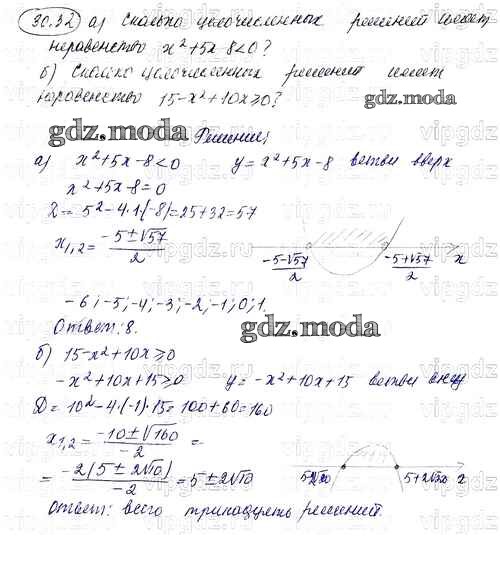 30.32 а) Сколько целочисленных решений имеет
неравенство x²+5x-8<0?
б) Сколько целочисленных решений имеет
неравенство 15-x²+10x≥0?
gdz.moda
gdz.moda Решение:
а) x²+5x-8<0 y=x²+5x-8 ветви вверх
x²+5x-8=0
D=5²-4·1·(-8)=25+32=57
x₁,₂=(-5±√57)/2
(-5-√57)/2 (-5+√57)/2 x
-6;-5;-4;-3;-2;-1;0;1.
Ответ: 8.
gdz.moda
б) 15-x²+10x≥0
-x²+10x+15≥0 y=-x²+10x+15 ветви
D=10²-4·(-1)·15=100+60=160
x₁,₂=(-10±√160)/-2 =
= -2(5±2√10)/-2 = 5±2√10
5-2√10 5+2√10
Ответ: всего тринадцать решений.